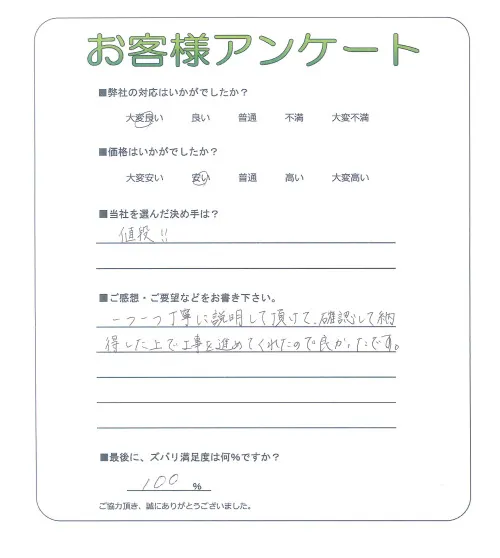 お客様アンケート
■弊社の対応はいかがでしたか？
大変良い 良い 普通 不満 大変不満
■価格はいかがでしたか？
大変安い 安い 普通 高い 大変高い
■当社を選んだ決め手は？
値段!!
■ご感想・ご要望などをお書き下さい。
一つ一つ丁寧に説明して頂けて、確認して納
得した上で工事を進めてくれたので良かったです。
■最後に、ズバリ満足度は何%ですか？
100 %
ご協力頂き、誠にありがとうございました。